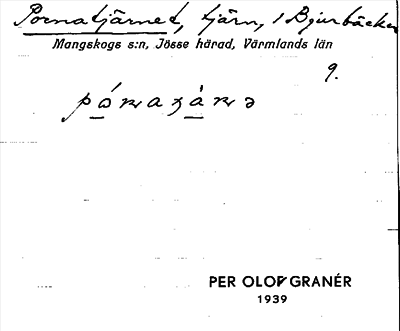 Pornatjärnet, tjärn, i Bjurbäcken
Mangskogs s:n, Jösse härad, Värmlands län
9.
PER OLOF GRANÉR
1939